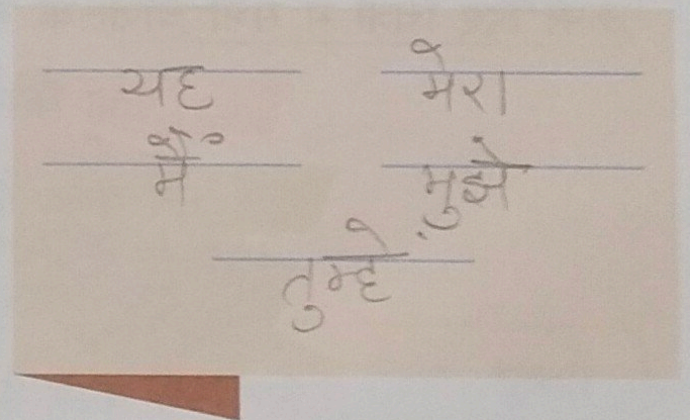 यह मेरा
मैं मुझे
तुम्हे